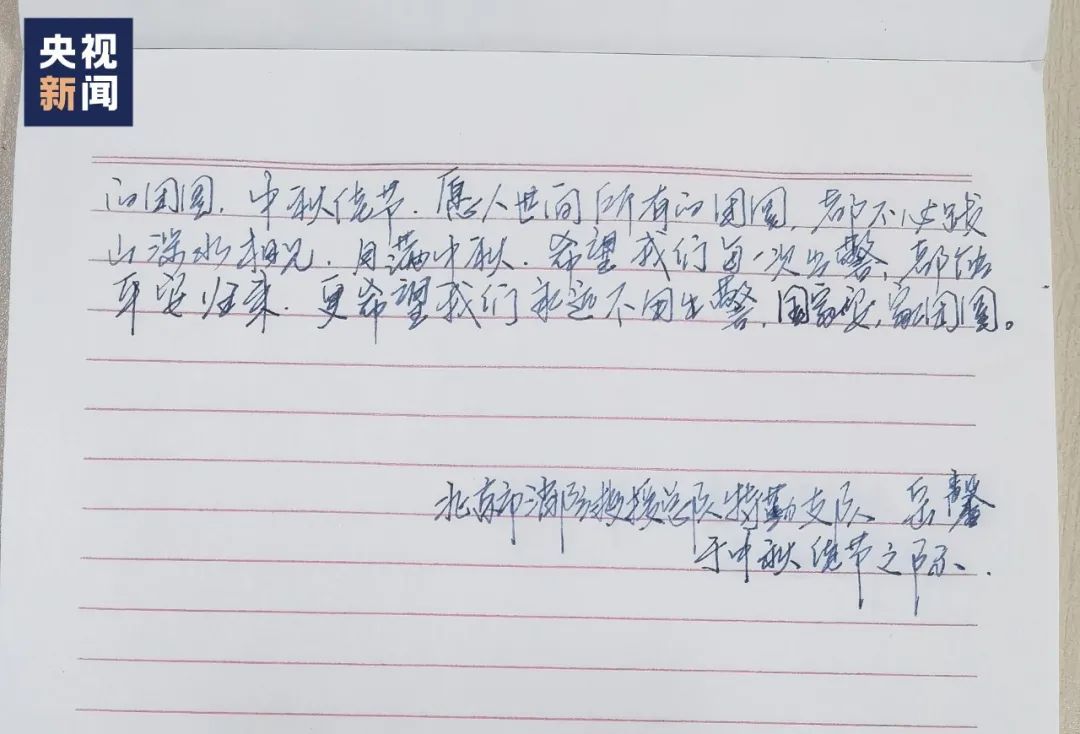 央视
新闻
的团圆,中秋佳节,愿人世间所有的团圆,都不必跋
山涉水相见,月满中秋,希望我们每一次出警,都能
平安归来,更希望我们永远不用出警,国家安,家团圆。
北京市消防救援总队特勤支队 岳馨
于中秋佳节之际.